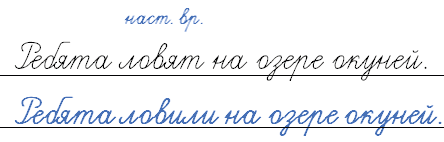 наст. вр.
Ребята ловят на озере окуней.
Ребята ловили на озере окуней.